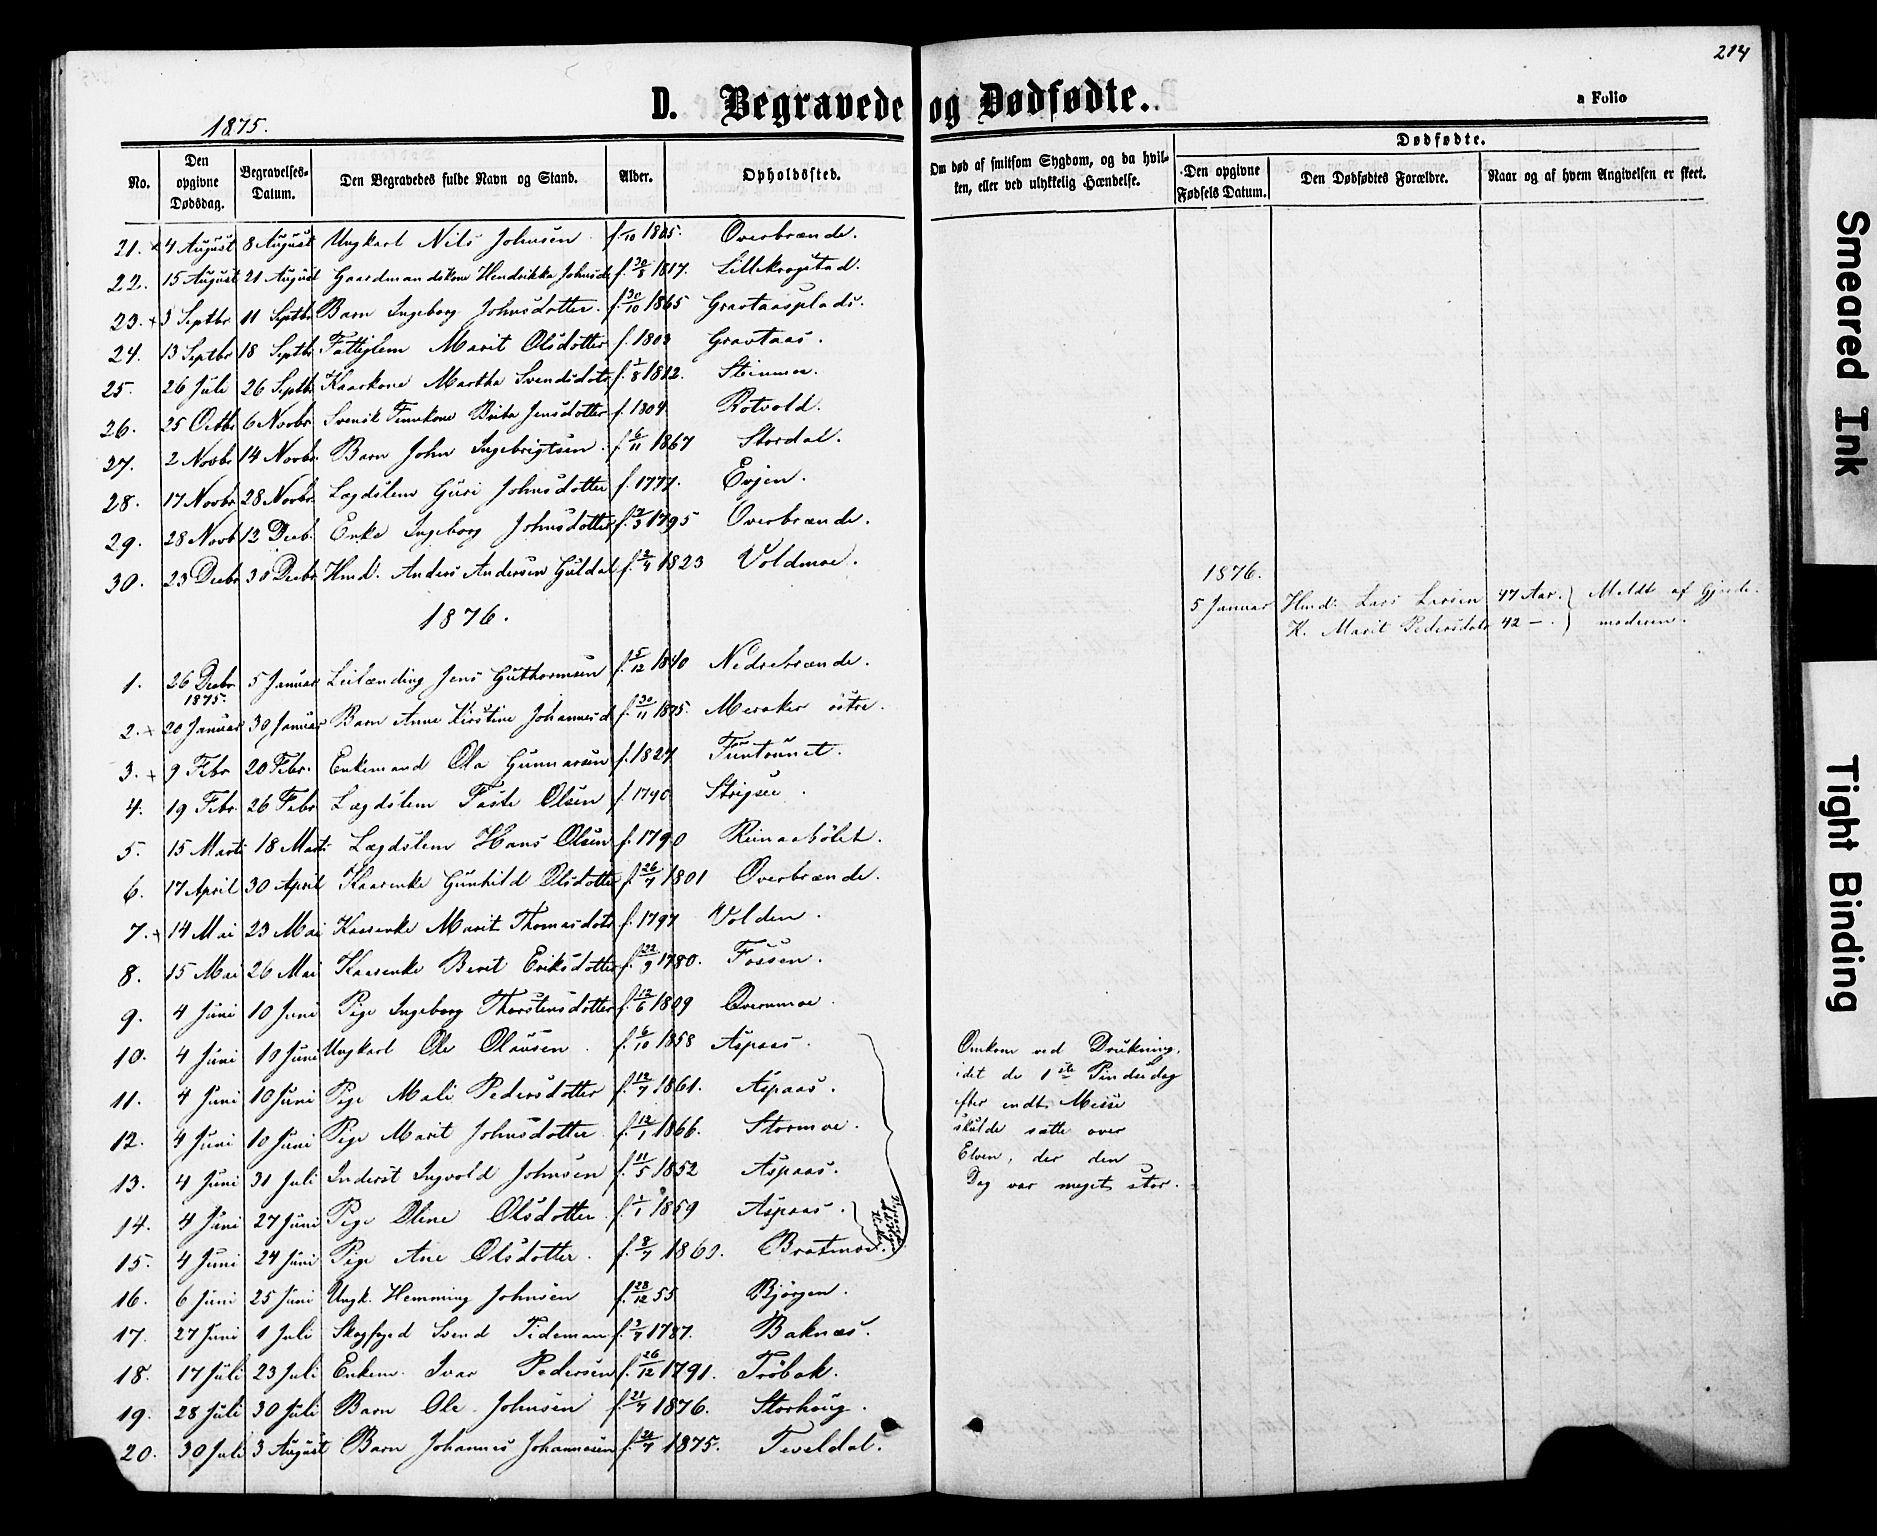 214
D. Begravede og Dødfødte.
a Folio
1875.
No. Den opgivne Dødsdag. Begravelses-Datum. Den Begravedes fulde Navn og Stand. Alder. Opholdssted. Om død af smitsom Sygdom, og da hvilken, eller ved ulykkelig Hændelse. Dødfødte. Den opgivne Fødsels Datum. Den Dødfødtes Forældre. Naar og af hvem Angivelsen er skeet.
21. 4 August 8 August Ungkarl Nils Johnsen f. /10 1805. Overbrænde.
22. 15 August 21 August Gaardmandskone Hendrikka Johnsd f. 30/8 1817. Lillekrogstad.
23. 3 Septbr 11 Septbr Barn Ingeborg Johnsdotter. f. 30/10 1865 Gravtaasplads.
24. 13 Septbr 18 Septbr Fattiglem Marit Olsdotter f. 1803 Gravtaas.
25. 26 Juli 26 Septb. Kaarkone Martha Svendsdotr f. 1/8 1812. Steinmoe.
26. 25 Octbr 6 Novbr Svensk Finnekone Brita Jensdotter f. 1804. Rotvold.
27. 2 Novbr 14 Novbr. Barn John Ingebrigtsen. f. 6/11 1867 Stordal.
28. 17 Novbr 28 Novbr. Lægdslem Guri Johnsdotter f. 1777. Evjen.
29. 28 Novb 12 Decb. Enke Ingeborg Johnsdotter f. /3 1795 Overbrænde.
30. 23 Decbr 30 Decbr Hmd. Anders Andersen Guldal f. 2/4 1823 Voldmoe.
1876.
5 Januar Hmd. Lars Larsen 47 Aar. } Meldt af Gjorde-
K. Marit Pedersdotr 42 — } moderen.
1876.
1. 26 Decbr 1875. 5 Januar Leilænding Jens Guthormsen f. 5/12 1840 Nedrebrænde.
2. 20 Januar 30 Januar Barn Anne Kirstine Johannesd f. 30/11 1875. Meraker östre.
3. 9 Febr 20 Febr. Enkemand Ola Gunnarsen f. 1827 Funtaunet.
4. 19 Febr. 26 Febr Lægdslem Taste Olsen f. 1790 Strigsee.
5. 15 Marts 18 Marts Lægdslem Hans Olsen f. 1790 Reinaabölet.
6. 17 April 30 April Kaarenke Gunhild Olsdotter f. 26/7 1801 Overbrænde.
7. 14 Mai 23 Mai Kaarenke Marit Thomasdotr f. 1797 Volden.
8. 15 Mai 26 Mai Kaarenke Berit Eriksdotter f. 22/9 1780. Fossen.
9. 4 Juni 10 Juni Pige Ingeborg Thorstensdotter f. 12/6 1809 Overnmoe.
10. 4 Juni 10 Juni Ungkarl Ole Olausen. f. 6/10 1858 Aspaas.
11. 4 Juni 10 Juni Pige Mali Pedersdotter f. 12/7 1861. Aspaas.
12. 4 Juni 10 Juni Pige Marit Johnsdotter. f. 12/1 1866. Stormoe.
13. 4 Juni 31 Juli Inderst Ingvold Johnsen f. 11/5 1852 Aspaas.
14. 4 Juni 27 Juni Pige Oline Olsdotter. f. 1/1 1859 Aspaas.
15. 4 Juni 24 Juni Pige Ane Olsdotter. f. 8/7 1860. Bratmoe.
Omkom ved Drukning,
idet de 1ste Pindsedag
efter endt Messe
skulde sætte over
Elven, der den
Dag var meget stor.
16. 6 Juni 25 Juni Ungk. Hemming Johnsen f. 28/12 55 Bjørgen.
17. 27 Juni 1 Juli Skogfoged Svend Tideman f. 2/4 1787. Baknæs.
18. 17 Juli 23 Juli Enkem. Ivar Pedersen f. 26/12 1791. Tröbak.
19. 28 Juli 30 Juli Barn Ole Johnsen f. 21/4 1876. Storhaug.
20. 30 Juli 3 August Barn Johannes Johannesen f. 21/7 1875. Teveldal.
Smeared Ink
Tight Binding